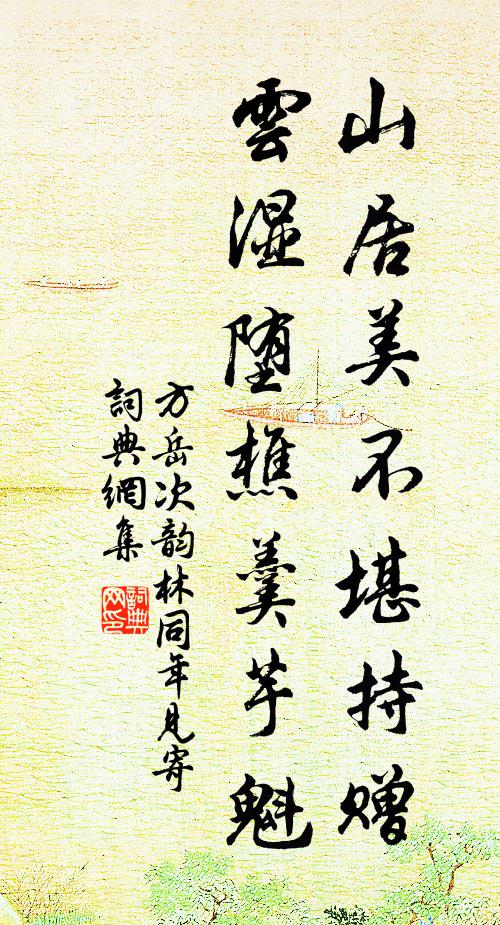 山居美不堪持赠
雲湿堕樵羹芋魁
方岳次韵林同年見寄
詞典網集
詞典网印